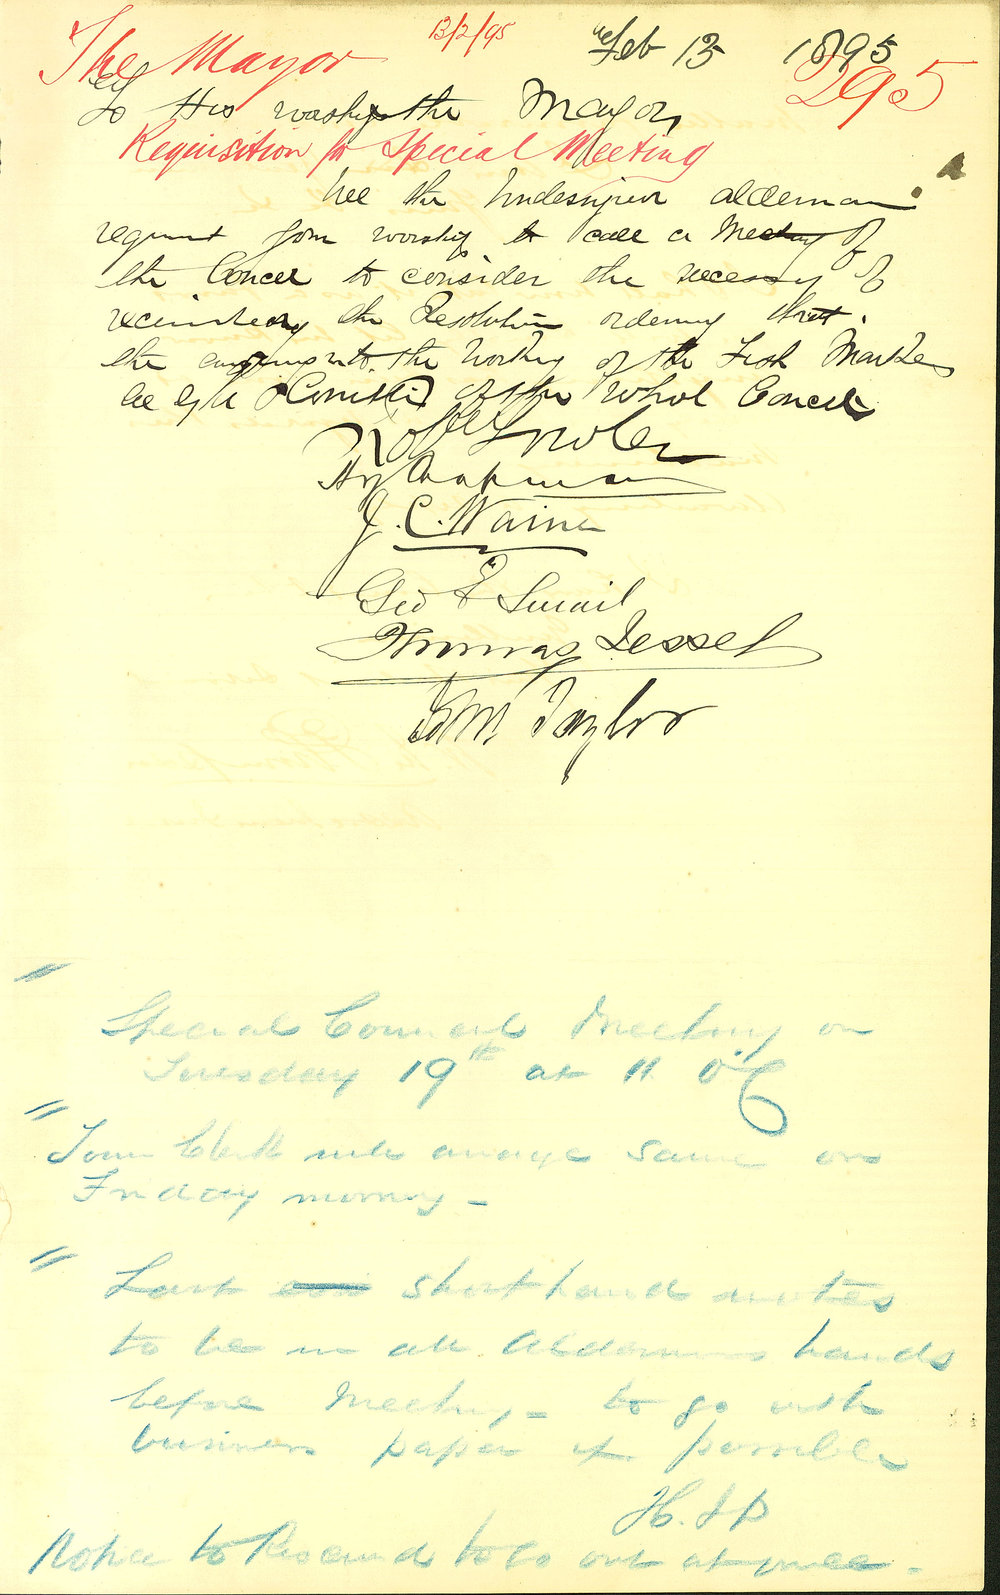 The Mayor 13/2/95 Feb 13 1895
295
To His worship the Mayor
Requisition for Special Meeting
Wee the Undersigned aldermen
request your worship to call a Meeting of
the Councel to consider the necessy of
the Resolution ordening that
the the Working of the Fish Market
be of the Whol Councel
Robt Fowler
Hy Chapman
J. C. Waine
Geo E Smail
Thomas Jessep
Taylor
Special Council Meeting on
Tuesday 19th at 11 o'C
Town Clerk will arrange same on
Friday morning -
Last short hand notes
to be in all Aldermens hands
before Meeting - to go with
business paper if possible
Notice to Rescind to go out at once -